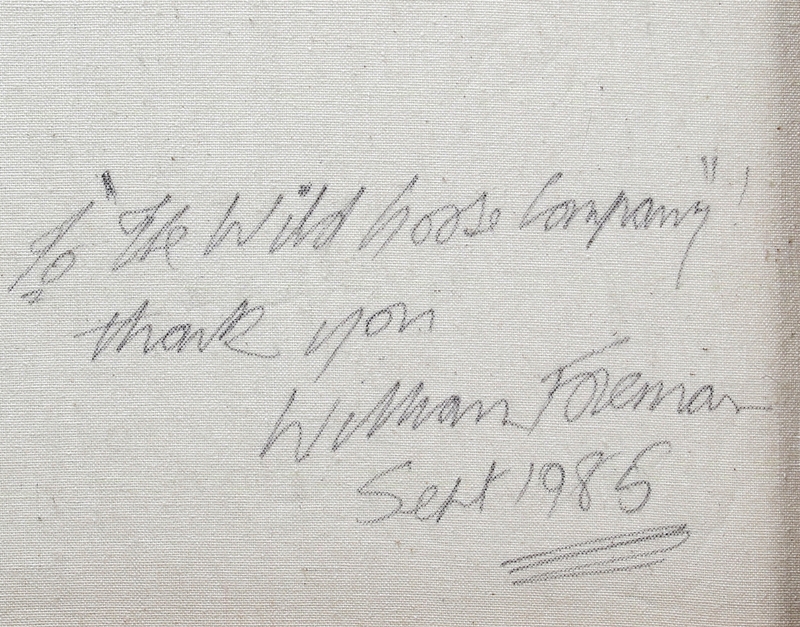 To "The Wild Goose Company"
thank you
William Foreman
Sept 1985